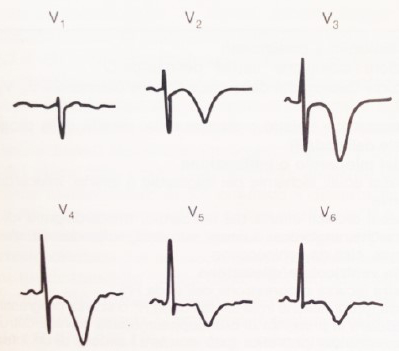 V₁ V₂ V₃
V₄ V₅ V₆